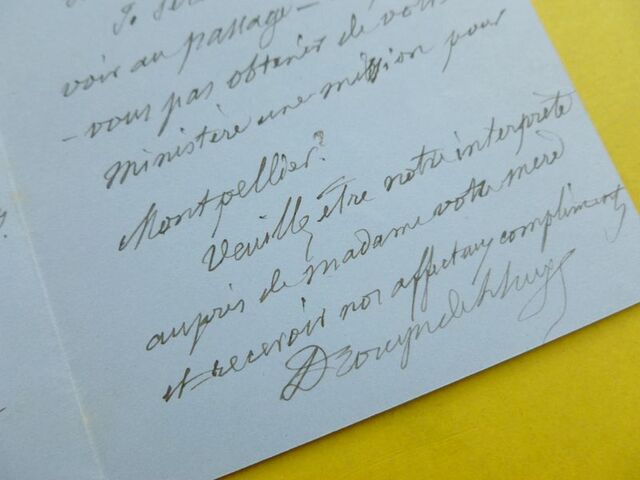 voir au passage –
– vous pas obtenir de votre
ministère une mission pour
Montpellier?
Veuillez être notre interprète
auprès de madame votre mère
et recevoir nos affectueux compliments
Drouyn de Lhuys